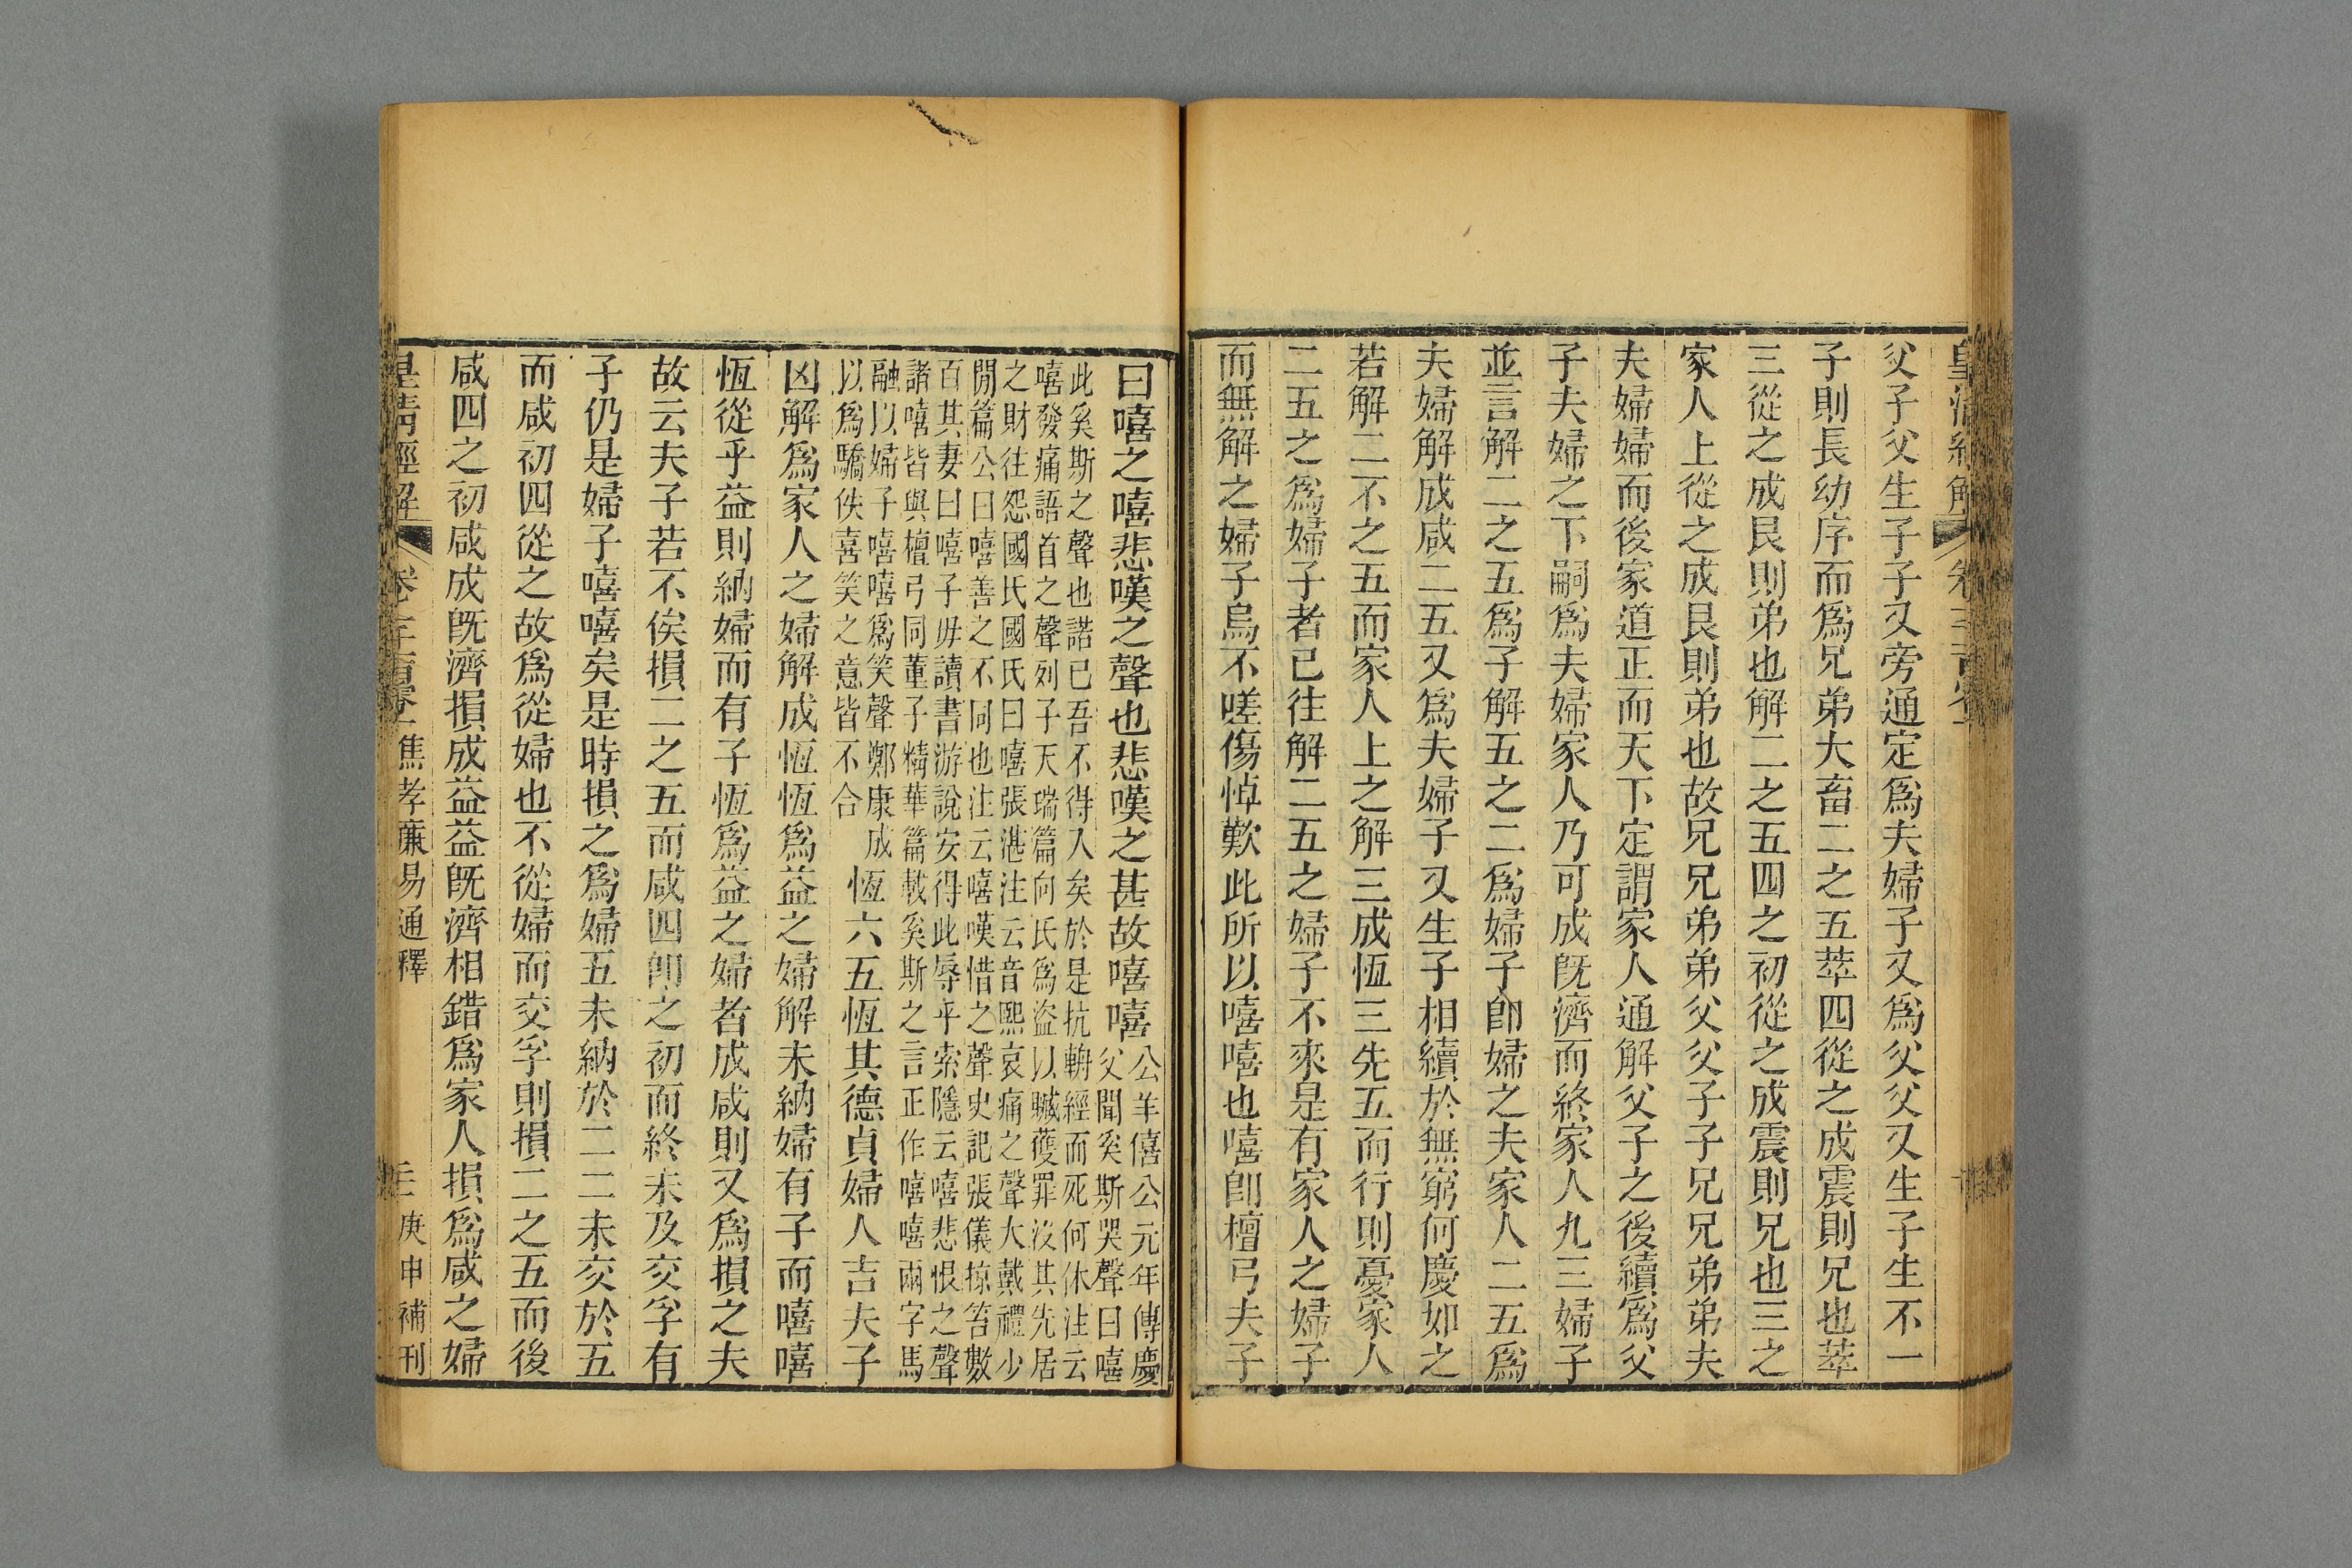 父子父生子子又旁通定爲夫婦子又爲父父又生子生不一
子則長幼序而爲兄弟大畜二之五萃四從之成震則兄也萃
三從之成艮則弟也解二之五四之初從之成震則兄也三之
家人上從之成艮則弟也故兄兄弟弟父父子子兄兄弟弟夫
夫婦婦而後家道正而天下定謂家人通解父子之後續爲父
子夫婦之下嗣爲夫婦家人乃可成旣濟而終家人九三婦子
並言解二之五爲子解五之二爲婦子卽婦之夫家人二五爲
夫婦解成咸二五又爲夫婦子又生子相續於無窮何慶如之
若解二不之五而家人上之解三成恆三先五而行則憂家人
二五之爲婦子者已往解二五之婦子不來是有家人之婦子
而無解之婦子烏不嗟傷悼歎此所以嘻嘻也嘻卽檀弓夫子
曰嘻之嘻悲嘆之聲也悲嘆之甚故嘻嘻
公羊僖公元年傳慶
父聞奚斯哭聲曰嘻
此奚斯之聲也諾已吾不得入矣於是抗輈經而死何休注云
嘻發痛語首之聲列子天瑞篇向氏爲盜以贓獲罪沒其先居
之財往怨國氏國氏曰嘻張湛注云音熙哀痛之聲大戴禮少
閒篇公曰嘻善之不同也注云嘻嘆惜之聲史記張儀掠笞數
百其妻曰嘻子毋讀書游說安得此辱乎索隱云嘻悲恨之聲
諸嘻皆與檀弓同董子精華篇載奚斯之言正作嘻嘻兩字馬
融以婦子嘻嘻爲笑聲鄭康成
以爲驕佚喜笑之意皆不合
恆六五恆其德貞婦人吉夫子
凶解爲家人之婦解成恆恆爲益之婦解未納婦有子而嘻嘻
恆從乎益則納婦而有子恆爲益之婦者成咸則又爲損之夫
故云夫子若不俟損二之五而咸四卽之初而終未及交孚有
子仍是婦子嘻嘻矣是時損之爲婦五未納於二二未交於五
而咸初四從之故爲從婦也不從婦而交孚則損二之五而後
咸四之初咸成旣濟損成益益旣濟相錯爲家人損爲咸之婦
皇清經解
焦孝廉易通釋
庚申補刊